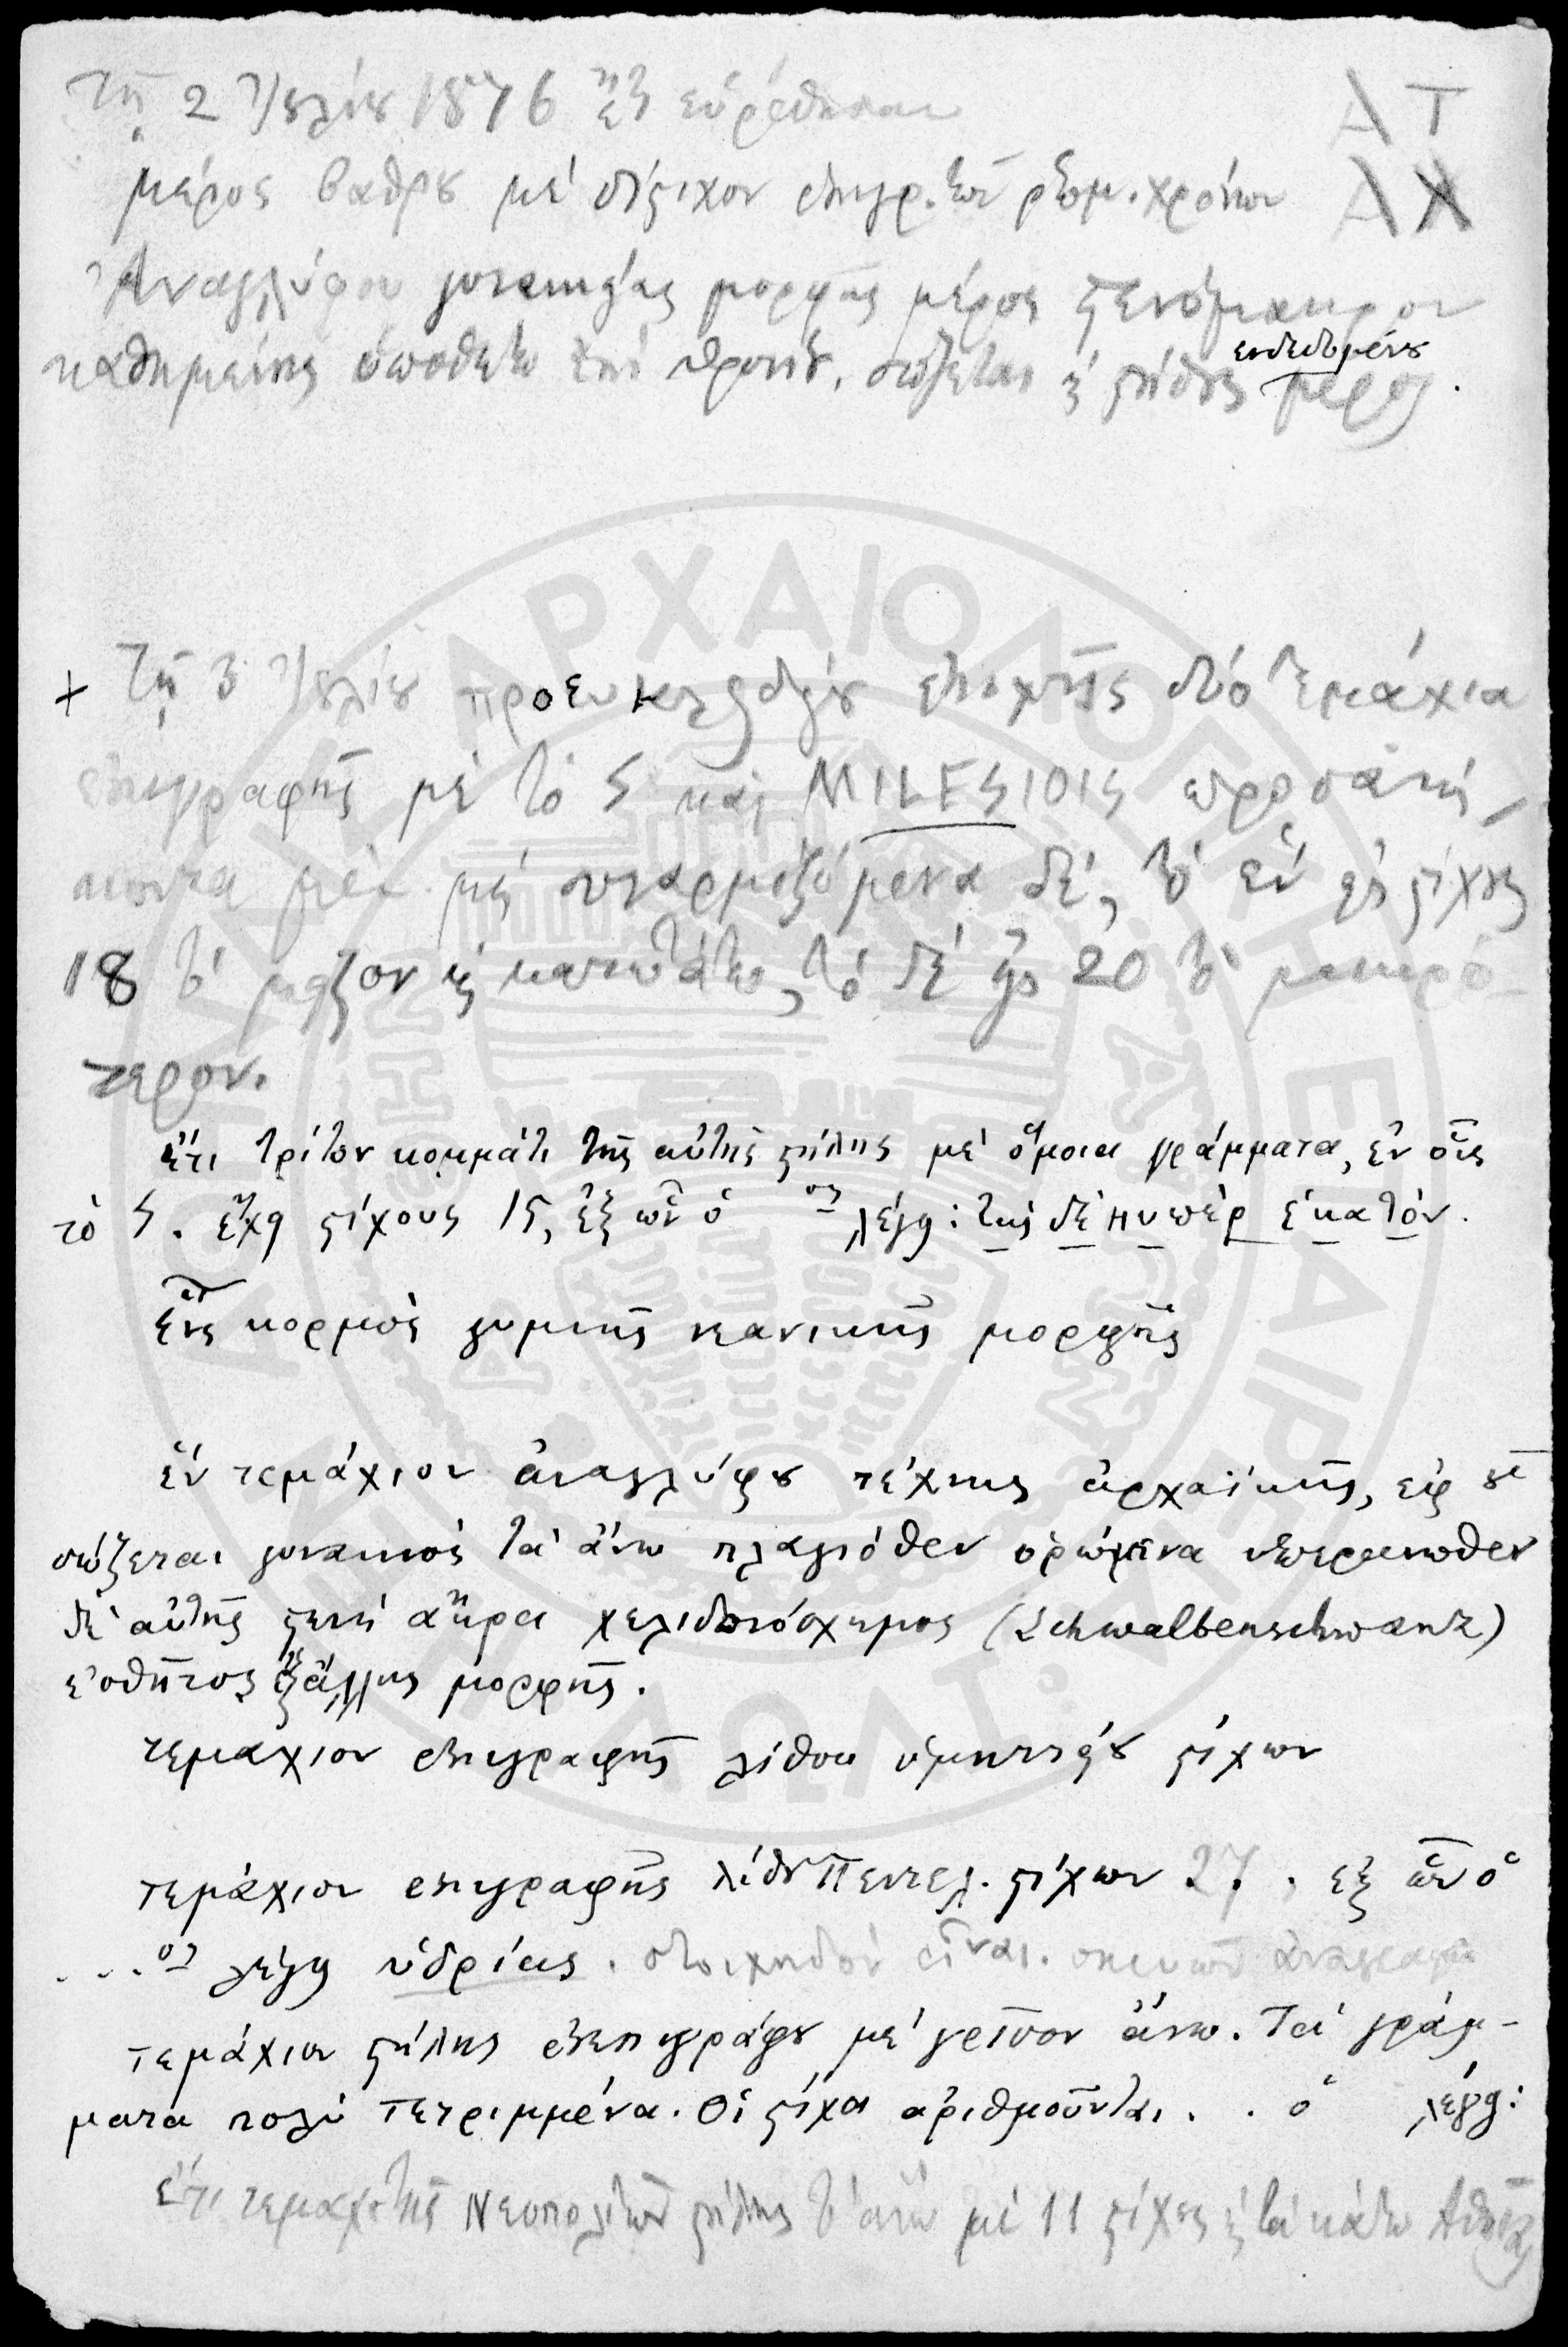 Τῇ 2 Ἰουλίου 1876 ἔτι εὑρέθησαν
μέρος βάθρου μὲ δίστιχον ἐπιγρ. τῶν ῥωμ. χρόνων
ΑΤ
ΑΧ
Ἀναγλύφου γυναικείας μορφῆς μέρος στενόμακρον
καθημένης ἐπὶ θρόνου, σώζεται στήθους ἐνδεδυμένου μέρος.
+ Τῇ 3 Ἰουλίου προευκλειδείου ἐποχῆς δύο τεμάχια
ἐπιγραφῆς μὲ τὸ S καὶ MILESIOIS προσανή-
κοντα μὲν μὴ συναρμοζόμενα δέ, τὸ ἓν ἐκ στίχους
18 τὸ μεῖζον κατωτάτω, τὸ δὲ 20 τὸ μικρό-
τερον.
ἔτι τρίτον κομμάτι τῆς αὐτῆς στήλης μὲ ὅμοια γράμματα, ἐν οἷς
τὸ S. ἔχει στίχους 15, ἐξ ὧν ὁ ος λέγει: τῆς δὲ ἑκατόν.
Εἷς κορμὸς γυμνῆς νεανικῆς μορφῆς
ἓν τεμάχιον ἀναγλύφου τέχνης ἀρχαϊκῆς, ἐφ' οὗ
σώζεται γυναικὸς τὰ ἄνω πλαγιόθεν ὁρώμενα ὑπεράνωθεν
δὲ αὐτῆς στενὴ ἄκρα χελιδονόσχημος (Schwalbenschwanz)
ἐσθῆτος ἐξ ἄλλης μορφῆς.
τεμάχιον ἐπιγραφῆς λίθου ὑμηττείου στίχων
τεμάχιον ἐπιγραφῆς λίθου Πεντελ. στίχων 27, ἐξ ὧν ὁ
...ος λέγει ὑδρίας. στοιχηδὸν εἶναι. σκευῶν ἀναγραφὴ
τεμάχιον στήλης ἐνεπιγράφου μὲ γεῖσον ἄνω. Τὰ γράμ-
ματα πολὺ τετριμμένα. Οἱ στίχοι ἀριθμοῦνται . . ὁ λέγει:
ἔτι τεμάχ. τῆς Νεοπολιτῶν στήλης τὸ ἄνω μὲ 11 στίχους τὰ κάτω